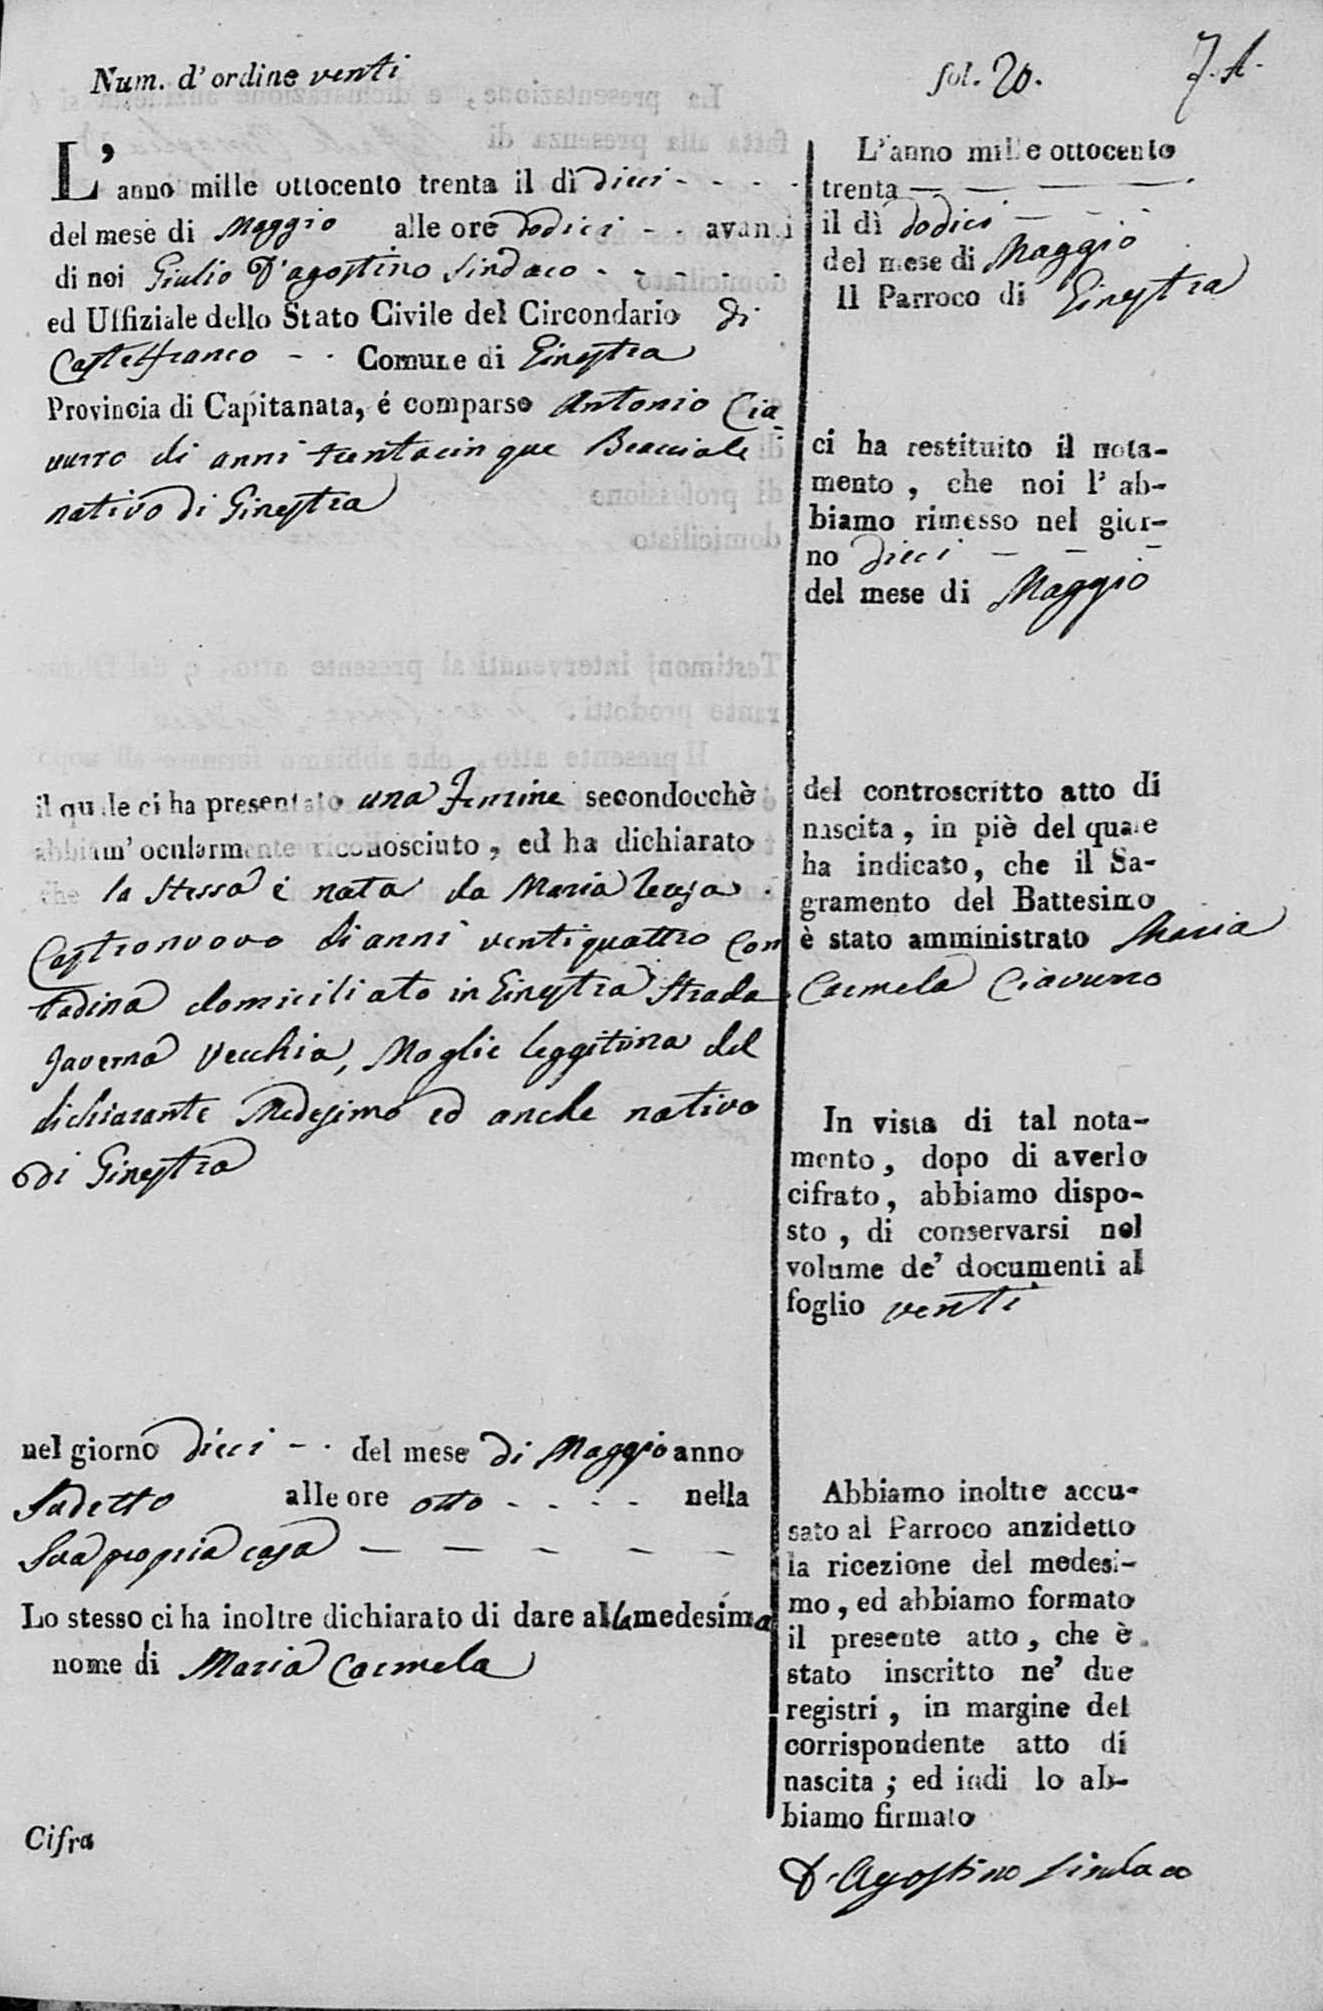 Num. d' ordine venti
fol. 20.
L' anno mille ottocento trenta il dì dieci - - - -
del mese di Maggio alle ore dodici - - avanti
di noi Giulio D'agostino Sindaco - - - - -
ed Uffiziale dello Stato Civile del Circondario di
Castelfranco - - Comune di Ginestra
Provincia di Capitanata, é comparso Antonio Cia
vurro di anni trentacinque Bracciale
nativo di Ginestra
il quale ci ha presentato una Femine secondocchè
abbiam' ocularmente riconosciuto, ed ha dichiarato
che la Stessa è nata da Maria Tereza
Castronuovo di anni ventiquattro Con
tadina domiciliato in Ginestra Strada
Taverna Vecchia, Moglie leggitima del
dichiarante Medesimo ed anche nativa
di Ginestra
nel giorno dieci - - del mese di Maggio anno
Sudetto alle ore otto - - - - nella
Sua propria casa — — — — — —
Lo stesso ci ha inoltre dichiarato di dare alla medesima
nome di Maria Carmela
Cifra
L'anno mille ottocento
trenta — — — —
il dì dodici — - -
del mese di Maggio
Il Parroco di Ginestra
ci ha restituito il nota-
mento, che noi l' ab-
biamo rimesso nel gior-
no dieci — — —
del mese di Maggio
del controscritto atto di
nascita, in piè del quale
ha indicato, che il Sa-
gramento del Battesimo
è stato amministrato Maria
Carmela Ciavurro
In vista di tal nota-
mento, dopo di averlo
cifrato, abbiamo dispo-
sto, di conservarsi nel
volume de' documenti al
foglio venti
Abbiamo inoltre accu-
sato al Parroco anzidetto
la ricezione del medesi-
mo, ed abbiamo formato
il presente atto, che è
stato inscritto ne' due
registri, in margine del
corrispondente atto di
nascita; ed indi lo ab-
biamo firmato
D'Agostino Sindaco